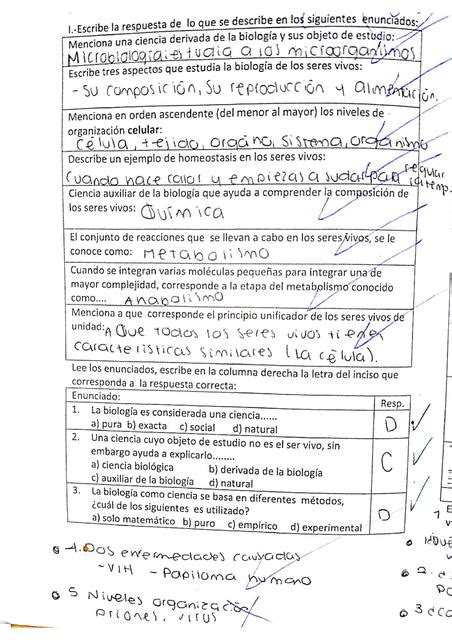 I.-Escribe la respuesta de lo que se describe en los siguientes enunciados:
Menciona una ciencia derivada de la biología y sus objeto de estudio:
Microbiología: estudia a los microorganismos
Escribe tres aspectos que estudia la biología de los seres vivos:
- Su composición, Su reproducción y alimentación.
Menciona en orden ascendente (del menor al mayor) los niveles de
organización celular:
célula, tejido, órgano, sistema, organismo
Describe un ejemplo de homeostasis en los seres vivos:
Cuando hace calor y empiezas a sudar para regular
la temp.
Ciencia auxiliar de la biología que ayuda a comprender la composición de
los seres vivos: Química
El conjunto de reacciones que se llevan a cabo en los seres vivos, se le
conoce como: Metabolismo
Cuando se integran varias moléculas pequeñas para integrar una de
mayor complejidad, corresponde a la etapa del metabolismo conocido
como.... Anabolismo
Menciona a que corresponde el principio unificador de los seres vivos de
unidad: A Que todos los seres vivos tienen
características similares (La célula).
Lee los enunciados, escribe en la columna derecha la letra del inciso que
corresponda a la respuesta correcta:
Enunciado: Resp.
1. La biología es considerada una ciencia......
a) pura b) exacta c) social d) natural D
2. Una ciencia cuyo objeto de estudio no es el ser vivo, sin
embargo ayuda a explicarlo........
a) ciencia biológica b) derivada de la biología C
c) auxiliar de la biología d) natural
3. La biología como ciencia se basa en diferentes métodos,
¿cuál de los siguientes es utilizado?
a) solo matemático b) puro c) empírico d) experimental D
4. Dos enfermedades causadas
- VIH - Papiloma humano
5 Niveles organización
Priones, virus
1
2. d.
3 dco